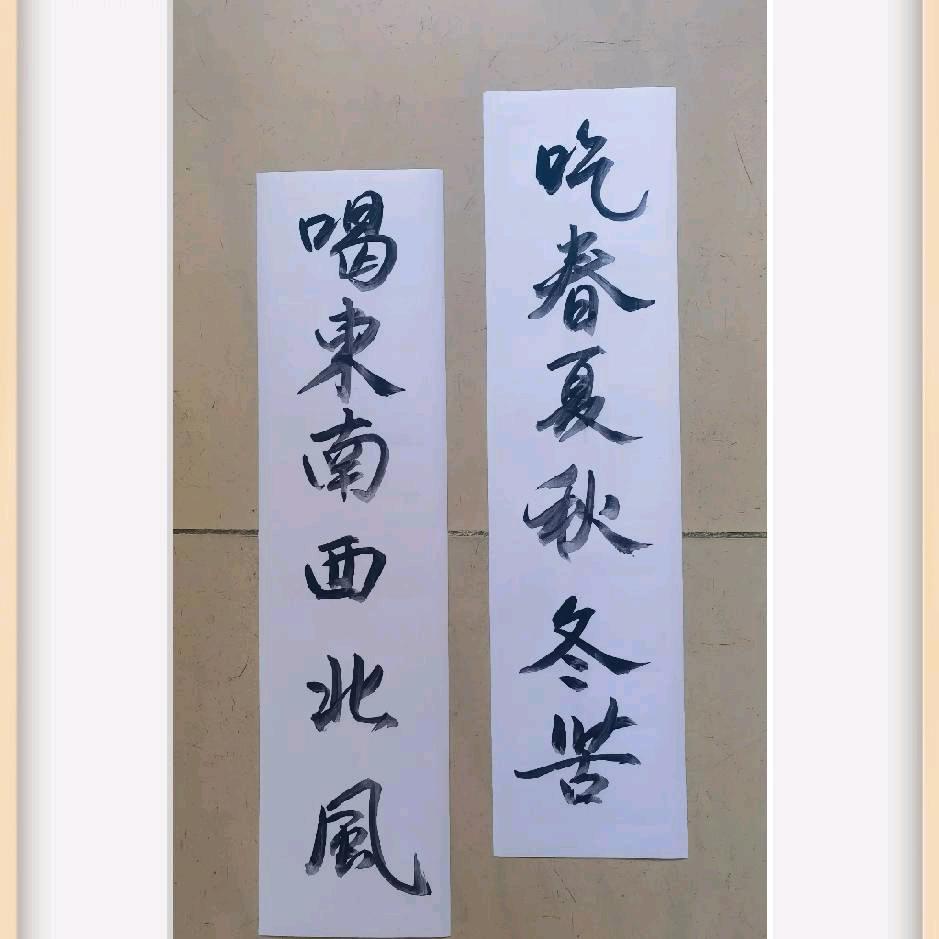 吃春夏秋冬苦
喝東南西北風